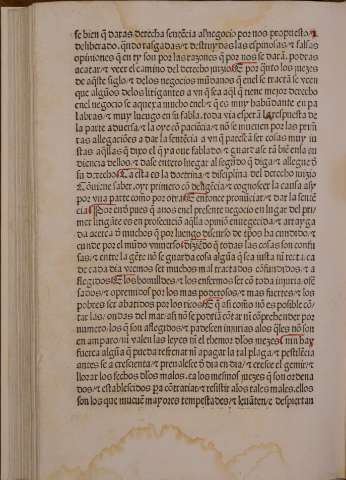 se bien q̃ daras derecha sentẽcia al negocio por nos propuesto/τ
deliberado. qñdo rasgadas/τ destruydas las espinosas/τ falsas
opiniones q̃ en ty son por las razones q̃ por nos se darã. podras
acatar/τ veer el camino del derecho juizio E por q̃nto los juezes
de aq̃ste siglo/τ delos negocios mũdanos q̃ enel se tractã se veen
que algũos delos litigantes a vn q̃ sea aq̃l q̃ tiene mejor derecho
enel negocio se aquexa mucho enel/τ q̃ es muy habũdante en pa
labras/τ muy luengo en su fabla. toda via esperã la respuesta de
la parte aduersa/τ la oyẽ cõ paciẽcia/τ nõ se mueuen por las prim
tas allegaciões a dar la sentẽcia a vn q̃ parescã ser cosas muy iu
stas aq̃llas q̃ dixo el q̃ ya oue fablado/τ guarr ase tã biẽ enla au
diencia dellos/τ dase entero luegar al segũdo q̃ diga/τ allegue đ
su derecho Ca esta es la doctrina/τ disciplina del derecho juizio
Cõuiene saber. oyr primero cõ deligẽcia/τ cognoscer la causa asy
por vna parte como por otra E entonce pronũciar/τ dar la sentẽ
cia Por ẽnd puedq̃ anos enel presente negocio en lugar del pri
mer litigãte es en prosecuciõ aq̃lla opiniõ enuegecida/τ arrayga
da acerca đ muchos q̃ por luengo discurso de tp̃os ha cundido/τ
cunde por el mũdo vniuerso diziẽdo q̃ todas las cosas son confu
sas/τ entre la gẽte nõ se guarda cosa algũa q̃ sea iusta nỉ recta. ca
de cada dia veemos ser muchos mal tractados cõfundidos/τ a
flegidos Los homildes/τ los enfermos ser cõ toda injuria. ofẽ
sados/τ opremidos por los mas poderosos/τ mas fuertes/τ los
pobres ser abatidos por los ricos E q̃ asi como nõ es posible cõ
tar las/ondas del mar/asi nõ se podria cõtar nỉ cõprehender por
numero. los q̃ son aflegidos/τ padescen injurias alos q̃les nõ son
en amparo/nỉ valen las leyes nỉ el themor đlos juezes nin hay
fuerça algũa q̃ pueda refrenar nỉ apagar la tal plaga/τ pestilẽcia
antes se a crescienta/τ preualesce đ dia en dia/τ cresce el gemir/τ
llorar los fechos đlos malos. ca los mesmos juezes q̃ son ordena
dos/τ establescidos pa cõtrariar/τ resistir alos tales males. ellos
son los que mueuẽ mayores tempestades/τ leuãten/τ despiertan